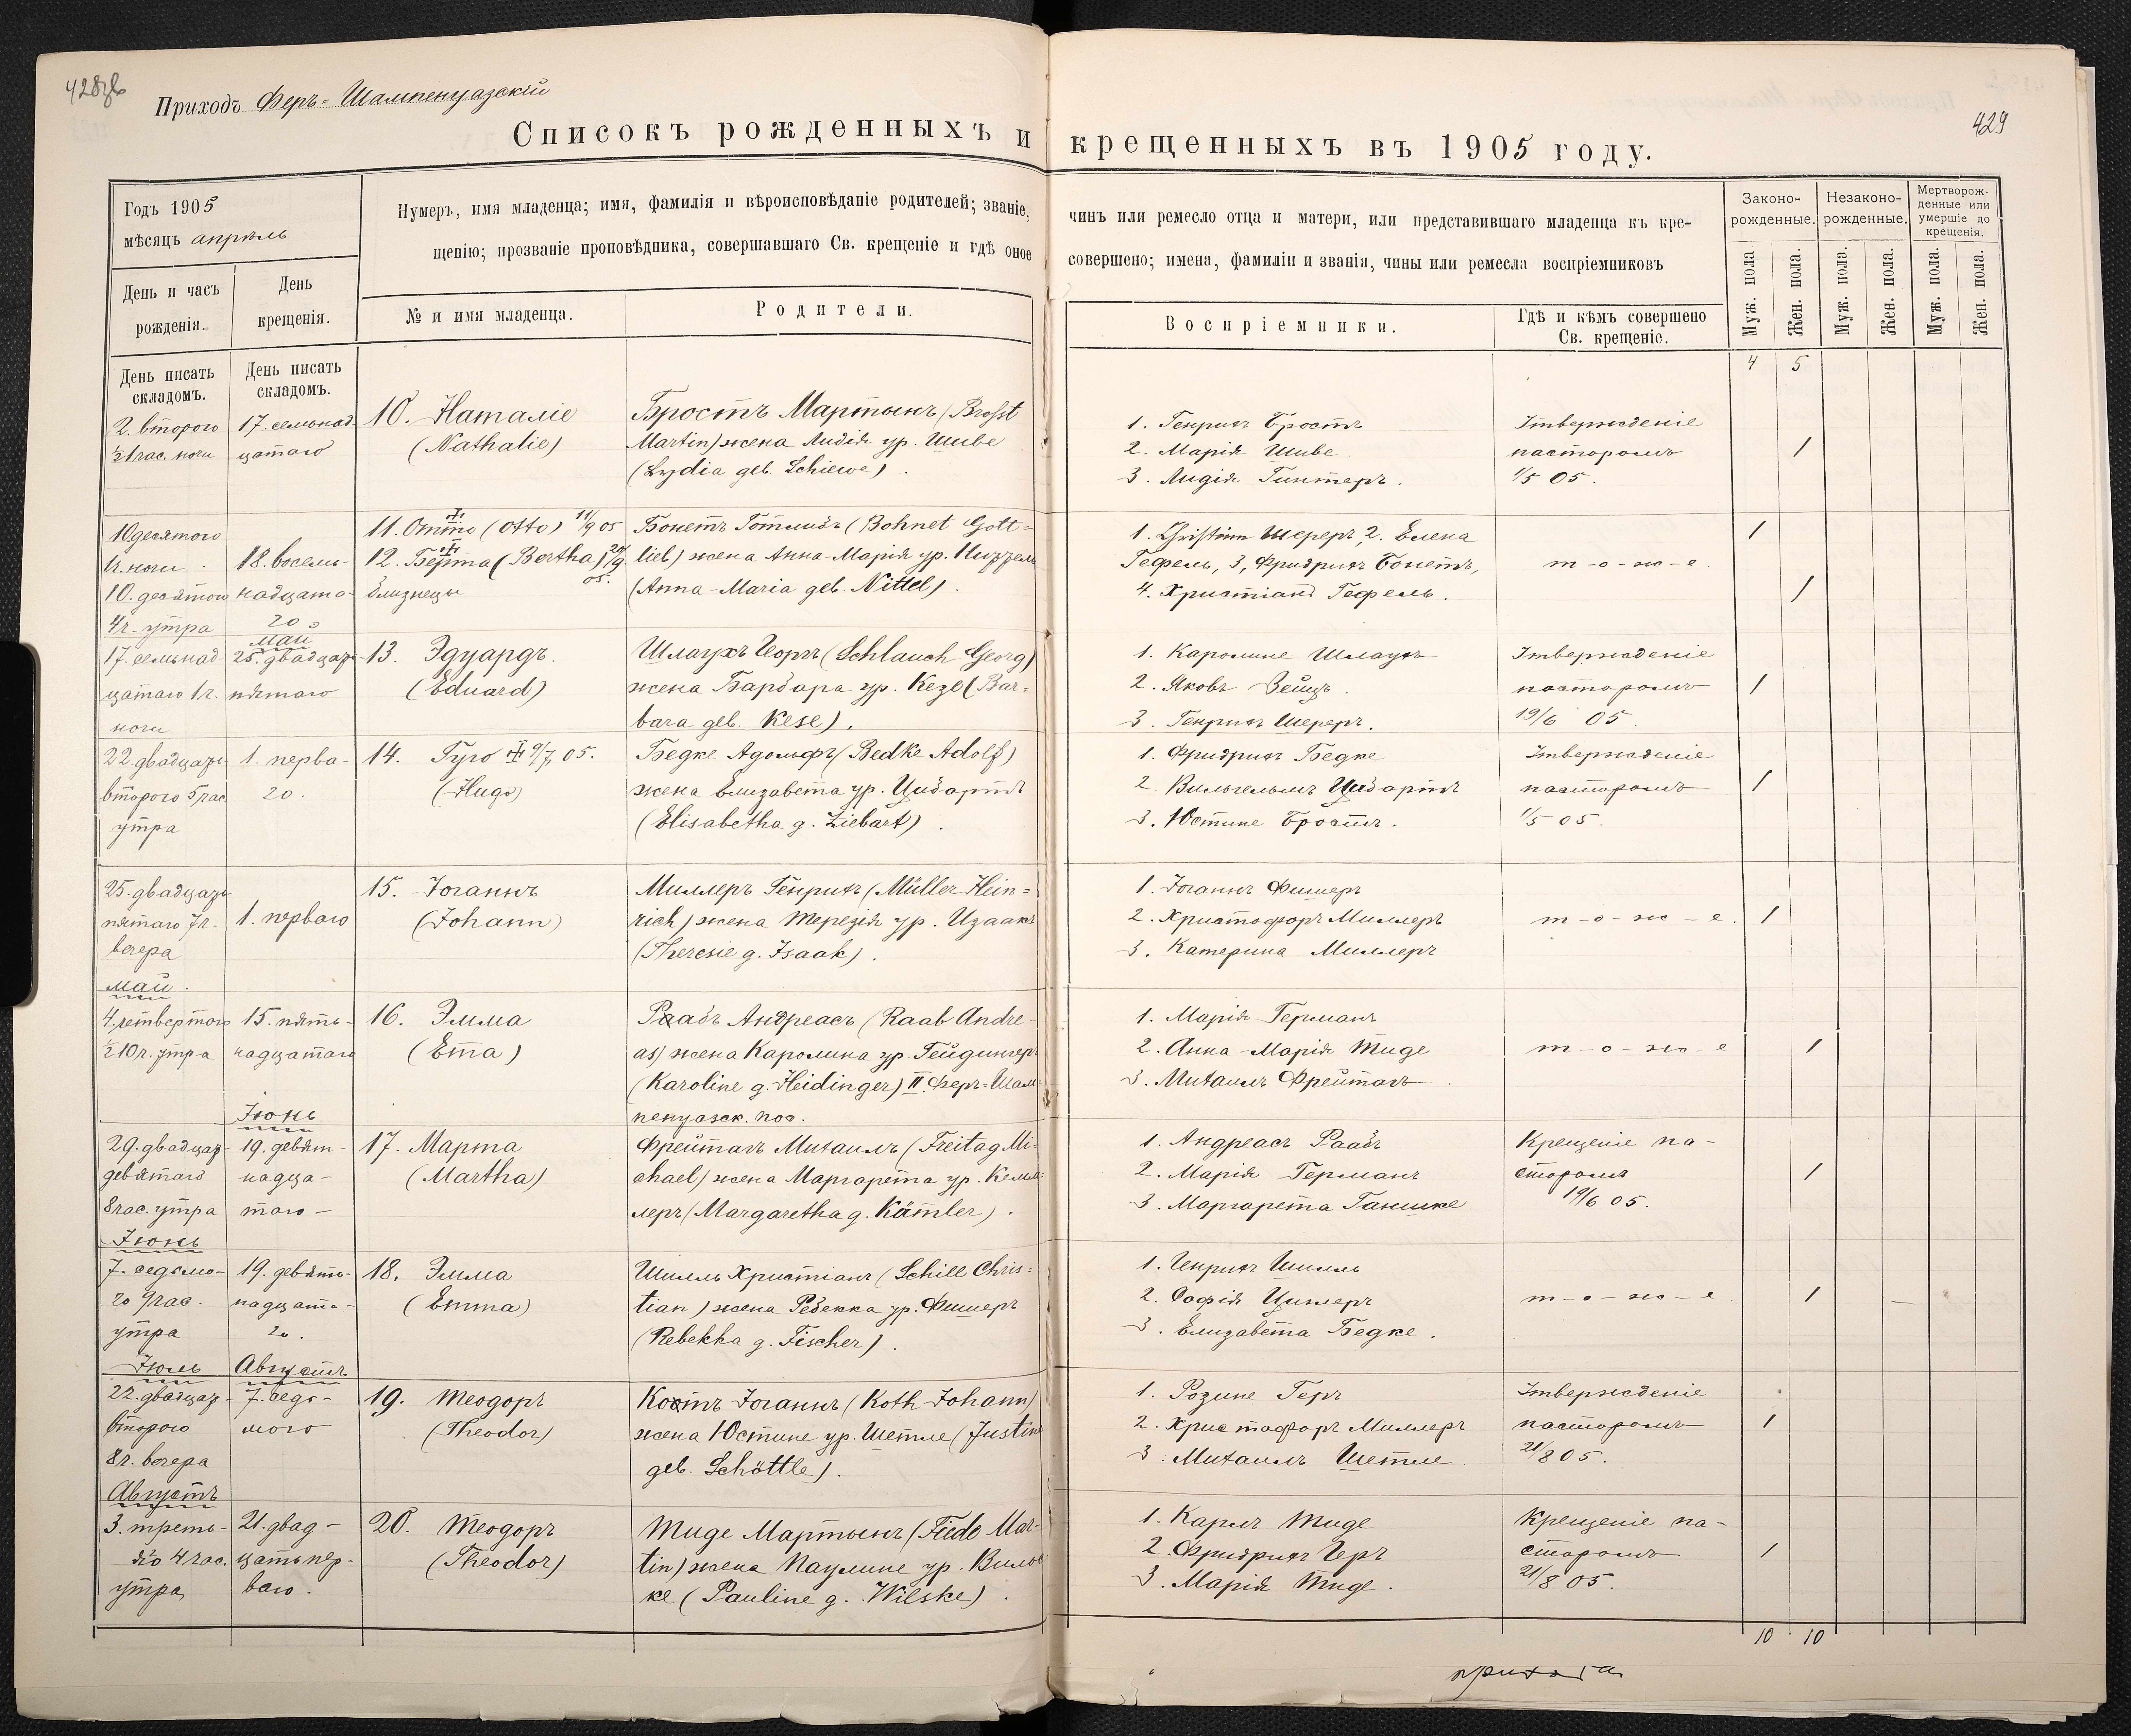 428об
Приходъ Феръ-Шампенуазскій
429
Списокъ рожденныхъ и крещенныхъ въ 1905 году.
Годъ 1905
мѣсяцъ апрѣль
День и часъ рожденія.
День крещенія.
Нумеръ, имя младенца; имя, фамилія и вѣроисповѣданіе родителей; званіе, чинъ или ремесло отца и матери, или представившаго младенца къ кре-
щенію; прозваніе проповѣдника, совершавшаго Св. крещеніе и гдѣ оное совершено; имена, фамиліи и званія, чины или ремесла воспріемниковъ
№ и имя младенца.
Родители.
Воспріемники.
Гдѣ и кѣмъ совершено Св. крещеніе.
Законо-рожденные.
Незаконо-рожденные.
Мертворож-денные или умершіе до крещенія.
Муж. пола
Жен. пола.
Муж. пола.
Жен. пола.
Муж. пола.
Жен. пола.
День писать складомъ.
День писать складомъ.
4 5
2. второго
½1 час. ночи
17. семнад-
цатаго
10. Наталіе
(Nathalie)
Бростъ Мартынъ (Brosst
Martin) жена Лидія ур. Шиве
(Lydia geb. Schiewe).
1. Генрихъ Бростъ
2. Марія Шиве
3. Лидія Гинтеръ.
Утвержденіе
пасторомъ
1/5 05.
1
10 десятого
1ч. ночи
10. десятого
4ч. утра
18. восемь-
надцата-
го
11. Отто (Otto) 11/9 05
12. Берта (Bertha)
05.
близнецы
Бонетъ Готлибъ (Bohnet Gott=
lieb) жена Анна-Марія ур. Ниттель
(Anna-Maria geb. Nittel).
1. Christina Шереръ, 2. Елена
Гефель, 3, Фридрихъ Бонетъ,
4. Христіанъ Гефель.
т-о-ж-е
1
1
17. семьнад-
цатаго 1ч.
ночи
май
25. двадцать
пятаго
13. Эдуардъ.
(Eduard)
Шлаухъ Георгъ (Schlauch Georg)
жена Барбара ур. Кезе (Bar=
bara geb. Kese).
1. Каролине Шлаухъ
2. Яковъ Зейцъ.
3. Генрихъ Шереръ.
Утвержденіе
пасторомъ
19/6 05.
1
22. двадцать
второго 5 час
утра
1. перва-
го.
14. Гуго 9/7 05.
(Hugo)
Бедке Адольфъ (Bedke Adolf)
жена Елизабета ур. Цибартъ
(Elisabetha g. Ziebart).
1. Фридрихъ Бедке
2. Вильгельмъ Цибартъ
3. Юстине Бростъ.
Утвержденіе
пасторомъ
1/5 05.
1
25. двадцать
пятаго 7ч.
вечера
1. перваго
15. Іоганнъ
(Johann)
Миллеръ Генрихъ (Müller Hein=
rich) жена Терезія ур. Изаакъ
(Theresie g. Isaak).
1. Іоганнъ Фишеръ
2. Христофоръ Миллеръ
3. Катерина Миллеръ
т-о-ж-е.
1
май.
4. четвертого
½10ч. утра
15. пять-
надцатаго
16. Эмма
(Ema)
Раабъ Андреасъ (Raab Andre-
as) жена Каролина ур. Гейдингеръ
(Karoline g. Heidinger) II Феръ-Шам-
пенуазск. пос.
1. Марія Германъ
2. Анна-Марія Тиде
3. Михаилъ Фрейтагъ
т-о-ж-е
1
29. двадцать
девятаго
8 час. утра
Іюнь
19. девят-
надца-
таго-
17. Марта
(Martha)
Фрейтагъ Михаилъ (Freitag Mi-
chael) жена Маргарета ур. Кемм-
леръ (Margaretha g. Kämler).
1. Андреасъ Раабъ
2. Марія Германъ
3. Маргарета Ганшке
Крещеніе па-
сторомъ
19/6 05.
1
Іюнь
7. седьмо-
го 9 час.
утра
19. девять-
надцата-
го.
18. Эмма
(Emma)
Шилль Христіанъ (Schill Chris-
tian) жена Ребекка ур. Фишеръ
(Rebekka g. Fischer).
1. Генрихъ Шилль
2. Софія Циммеръ
3. Елизабета Бедке.
т-о-ж-е
1
Іюль
22. двадцать
второго
8ч. вечера
Августъ
7. седь-
мого
19. Теодоръ
(Theodor)
Котъ Іоганнъ (Koth Johann)
жена Юстине ур. Шетле (Justine
geb. Schöttle).
1. Розине Геръ
2. Христофоръ Миллеръ
3. Михаилъ Шетле
Утвержденіе
пасторомъ
21/8 05.
1
Августъ
3. треть-
яго 4 час.
утра
21. двад-
цать пер-
ваго.
20. Теодоръ
(Theodor)
Тиде Мартынъ (Tiede Mar-
tin) жена Паулине ур. Вильс-
ке (Pauline g. Wilske).
1. Карлъ Тиде
2. Фридрихъ Геръ
3. Марія Тиде.
Крещеніе па-
сторомъ
21/8 05.
1
10 10